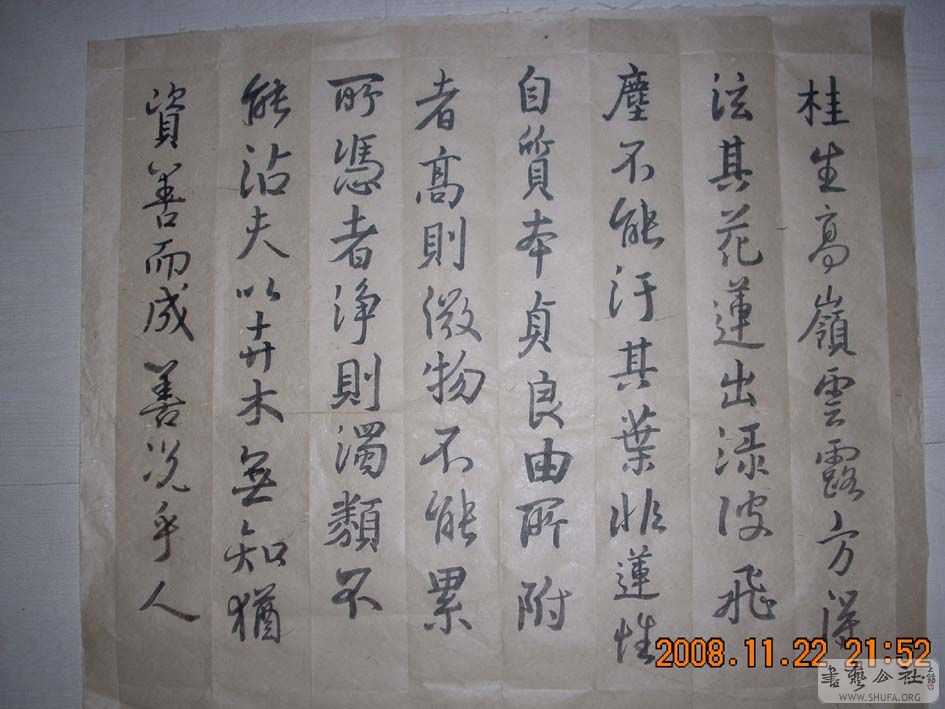 桂生高嶺雲露方得
泫其花蓮出淥波飛
塵不能汙其葉非蓮性
自質本貞良由所附
者高則微物不能累
所憑者淨則濁類不
能沾夫以卉木無知猶
資善而成善況乎人
2008.11.22 21:52
書藝公社
WWW.SHUFA.ORG